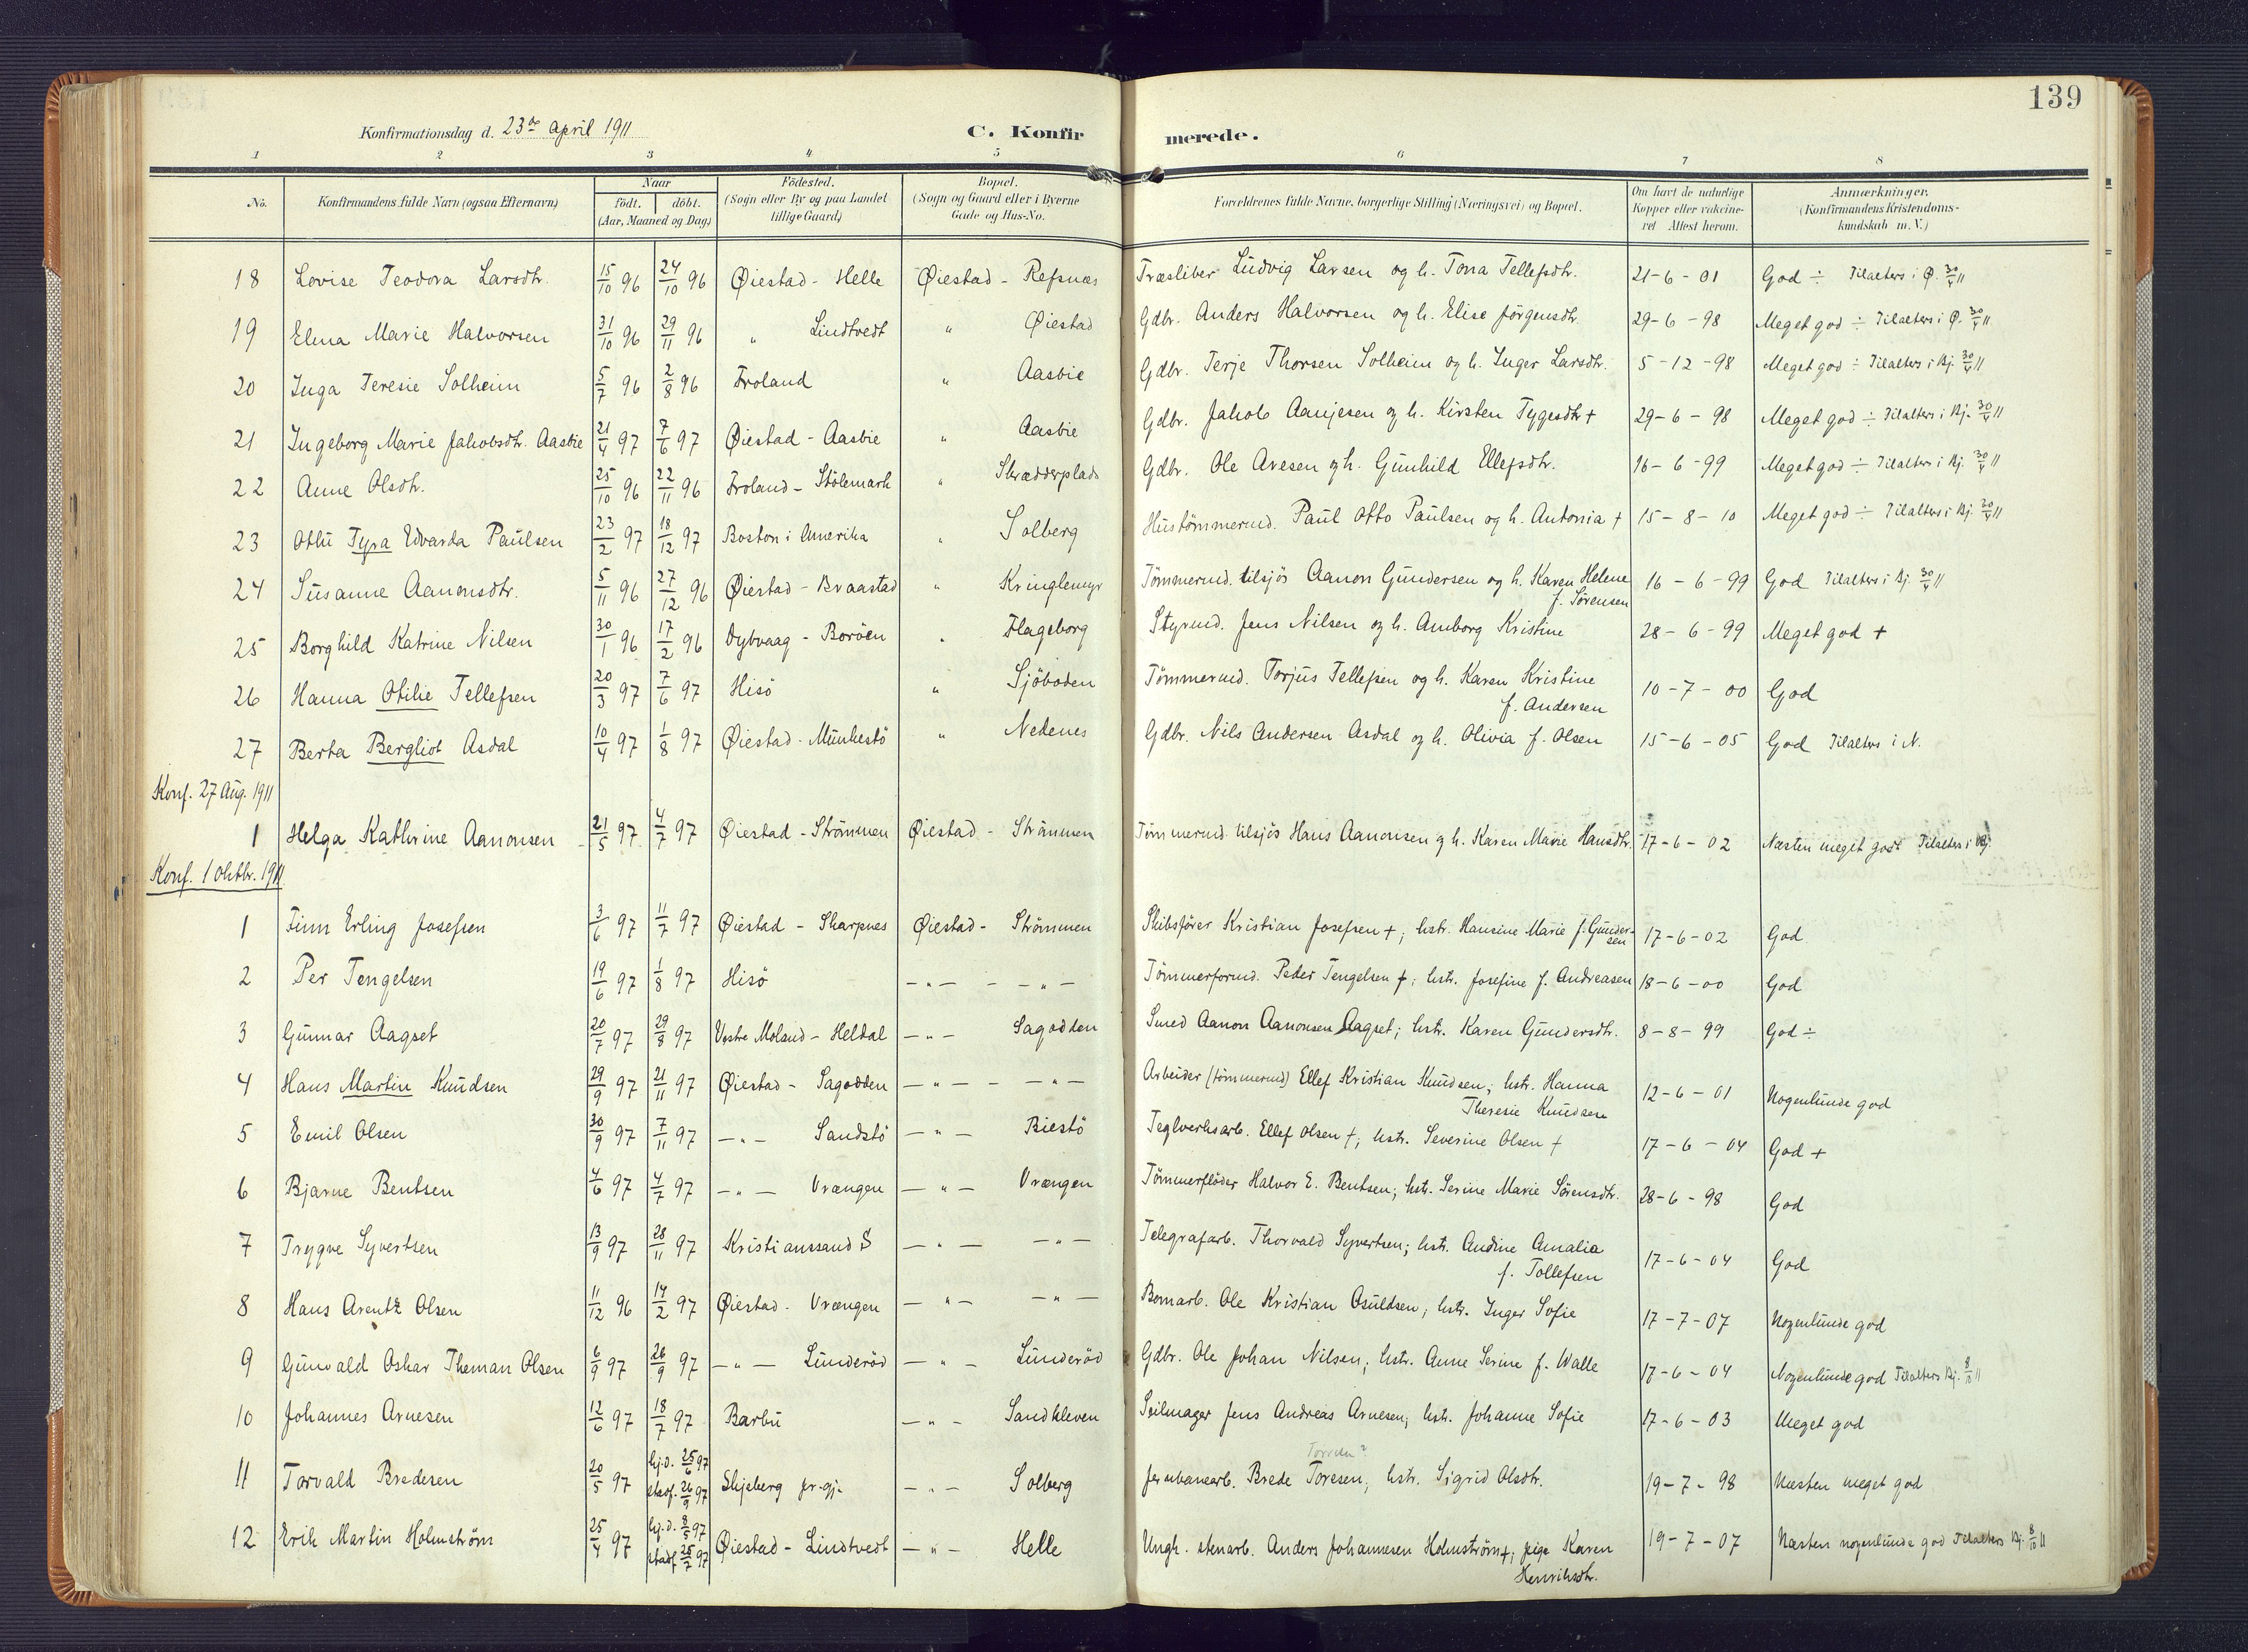 139
Konfirmationsdag d. 23de April 1911 C. Konfirmerede.
1 2 3 4 5 6 7 8
No. Konfirmandens fulde Navn (ogsaa Efternavn) Naar födt. döbt. (Aar, Maaned og Dag) Födested. (Sogn eller By og paa Landet tillige Gaard) Bopæl. (Sogn og Gaard eller i Byerne Gade og Hus-No. Forældrenes fulde Navne, borgerlige Stilling (Næringsvei) og Bopæl. Om havt de naturlige Kopper eller vakcineret Attest herom. Anmærkninger. (Konfirmandens Kristendomskundskab m. V.)
18 Lovise Teodora Larsdtr. 15/10 96 24/10 96 Øiestad - Helle Øiestad - Refsnæs Træsliber Ludvig Larsen og h. Tona Tellefsdtr. 21-6-01 God ÷ Tilalters i Ø. 30/4 11
19 Elena Marie Halvorsen 31/10 96 29/11 96 " Lindtvedt " Øiestad Gdbr. Anders Halvorsen og h. Elise Jörgensdtr. 29-6-98 Meget god ÷ Tilalters i Ø. 30/4 11
20 Inga Teresie Solheim 5/7 96 2/8 96 Froland " Aasbie Gdbr. Terje Thorsen Solheim og h. Inger Larsdtr. 5-12-98 Meget god ÷ Tilalters i Bj. 30/4 11
21 Ingeborg Marie Jakobsdtr. Aasbie 21/4 97 7/6 97 Øiestad - Aasbie " Aasbie Gdbr. Jakob Aanjesen og h. Kirsten Tygesdtr + 29-6-98 Meget god ÷ Tilalters i Bj. 30/4 11
22 Anne Olsdtr. 25/10 96 22/11 96 Froland - Stölemark " Skrædderplads Gdbr. Ole Aresen og h. Gunhild Ellefsdtr. 16-6-99 Meget god ÷ Tilalters i Bj. 30/4 11
23 Ottu Tyra Edvarda Paulsen 23/2 97 18/12 97 Boston i Amerika " Solberg Hustömmermd. Paul Otto Paulsen og h. Antonia + 15-8-10 Meget god ÷ Tilalters i Bj. 30/4 11
24 Susanne Aanonsdtr. 5/11 96 27/12 96 Øiestad - Braastad " Kringlemyr Tömmermd. tilsjös Aanon Gundersen og h. Karen Helene f. Sørensen 16-6-99 God Tilalters i Bj. 30/4 11
25 Borghild Katrine Nilsen 30/1 96 17/2 96 Dybvaag - Boröen " Flageborg Styrmd. Jens Nilsen og h. Amborg Kristine 28-6-99 Meget god +
26 Hanna Otilie Tellefsen 20/3 97 7/6 97 Hisö " Sjöboden Tömmermd. Torjus Tellefsen og h. Karen Kristine f. Andersen 10-7-00 God
27 Berta Bergliot Asdal 10/4 97 1/8 97 Øiestad - Munkestö " Nedenes Gdbr. Nils Andersen Asdal og h. Olivia f. Olsen 15-6-05 God Tilalters i N.
Konf. 27 Aug. 1911
1 Helga Kathrine Aanonsen 21/5 97 4/7 97 Øiestad - Strömmen Øiestad - Strömmen Tömmermd. tilsjös Hans Aanonsen og h. Karen Marie Hansdtr. 17-6-02 Næsten meget godt Tilalters i Bj.
Konf. 1 Oktbr. 1911
1 Finn Erling Josefsen 3/6 97 11/7 97 Øiestad - Skarpnes Øiestad - Strömmen Skibsfører Kristian Josefsen +; hstr. Hansine Marie f. Gundersen 17-6-02 God
2 Per Tengelsen 19/6 97 1/8 97 Hisö -"- - -"- Tömmerformd. Peder Tengelsen +; hstr. Josefine f. Andreasen 18-6-00 God
3 Gunnar Aagset 20/7 97 29/8 97 Vestre Moland - Heldal -"- Sagodden Smed Aanon Aanonsen Aagset; hstr. Karen Gundersdtr. 8-8-99 God ÷
4 Hans Martin Knudsen 29/9 97 21/11 97 Øiestad - Sagodden -"- - -"- Arbeider (tömmermd) Ellef Kristian Knudsen; hstr. Hanna Theresie Knudsen 12-6-01 Nogenlunde god
5 Emil Olsen 30/9 97 7/11 97 -"- Sandstö -"- Biestö Teglverksarb. Ellef Olsen +; hstr. Severine Olsen + 17-6-04 God +
6 Bjarne Bentsen 4/6 97 4/7 97 -"- Vrængen -"- Vrængen Tömmerflöder Halvor E. Bentsen; hstr. Serine Marie Sörensdtr. 28-6-98 God
7 Trygve Syvertsen 13/9 97 28/11 97 Kristianssand S -"- -"- Telegrafarb. Thorvald Syvertsen; hstr. Andine Amalia f. Tollefsen 17-6-04 God
8 Hans Arentz Olsen 11/12 96 14/2 97 Øiestad - Vrængen -"- -"- Bomarb. Ole Kristian Osuldsen; hstr. Inger Sofie 17-7-07 Nogenlunde god
9 Gunvald Oskar Theman Olsen 6/9 97 26/9 97 -"- Lunderöd -"- Lunderöd Gdbr. Ole Johan Nilsen; hstr. Anne Serine f. Walle 17-6-04 Nogenlunde god Tilalters Bj. 8/10 11
10 Johannes Arnesen 12/6 97 18/7 97 Barbu -"- Sandkleven Seilmager Jens Andreas Arnesen; hstr. Johanne Sofie 17-6-03 Meget god
11 Torvald Bredesen 20/5 97 hj.d. 25/6 97 stadf. 26/9 97 Skjeberg pr.gj. -"- Solberg Jernbanearb. Brede Toresen; hstr. Sigrid Olsdtr. 19-7-98 Næsten meget god
12 Erik Martin Holmström 25/4 97 hj.d. 8/5 97 stadf. 25/7 97 Øiestad - Lindtvedt -"- Helle Ungk. stenarb. Anders Johannesen Holmström +; pige Karen Henriksdtr. 19-7-07 Næsten nogenlunde god Tilalters Bj. 8/10 11